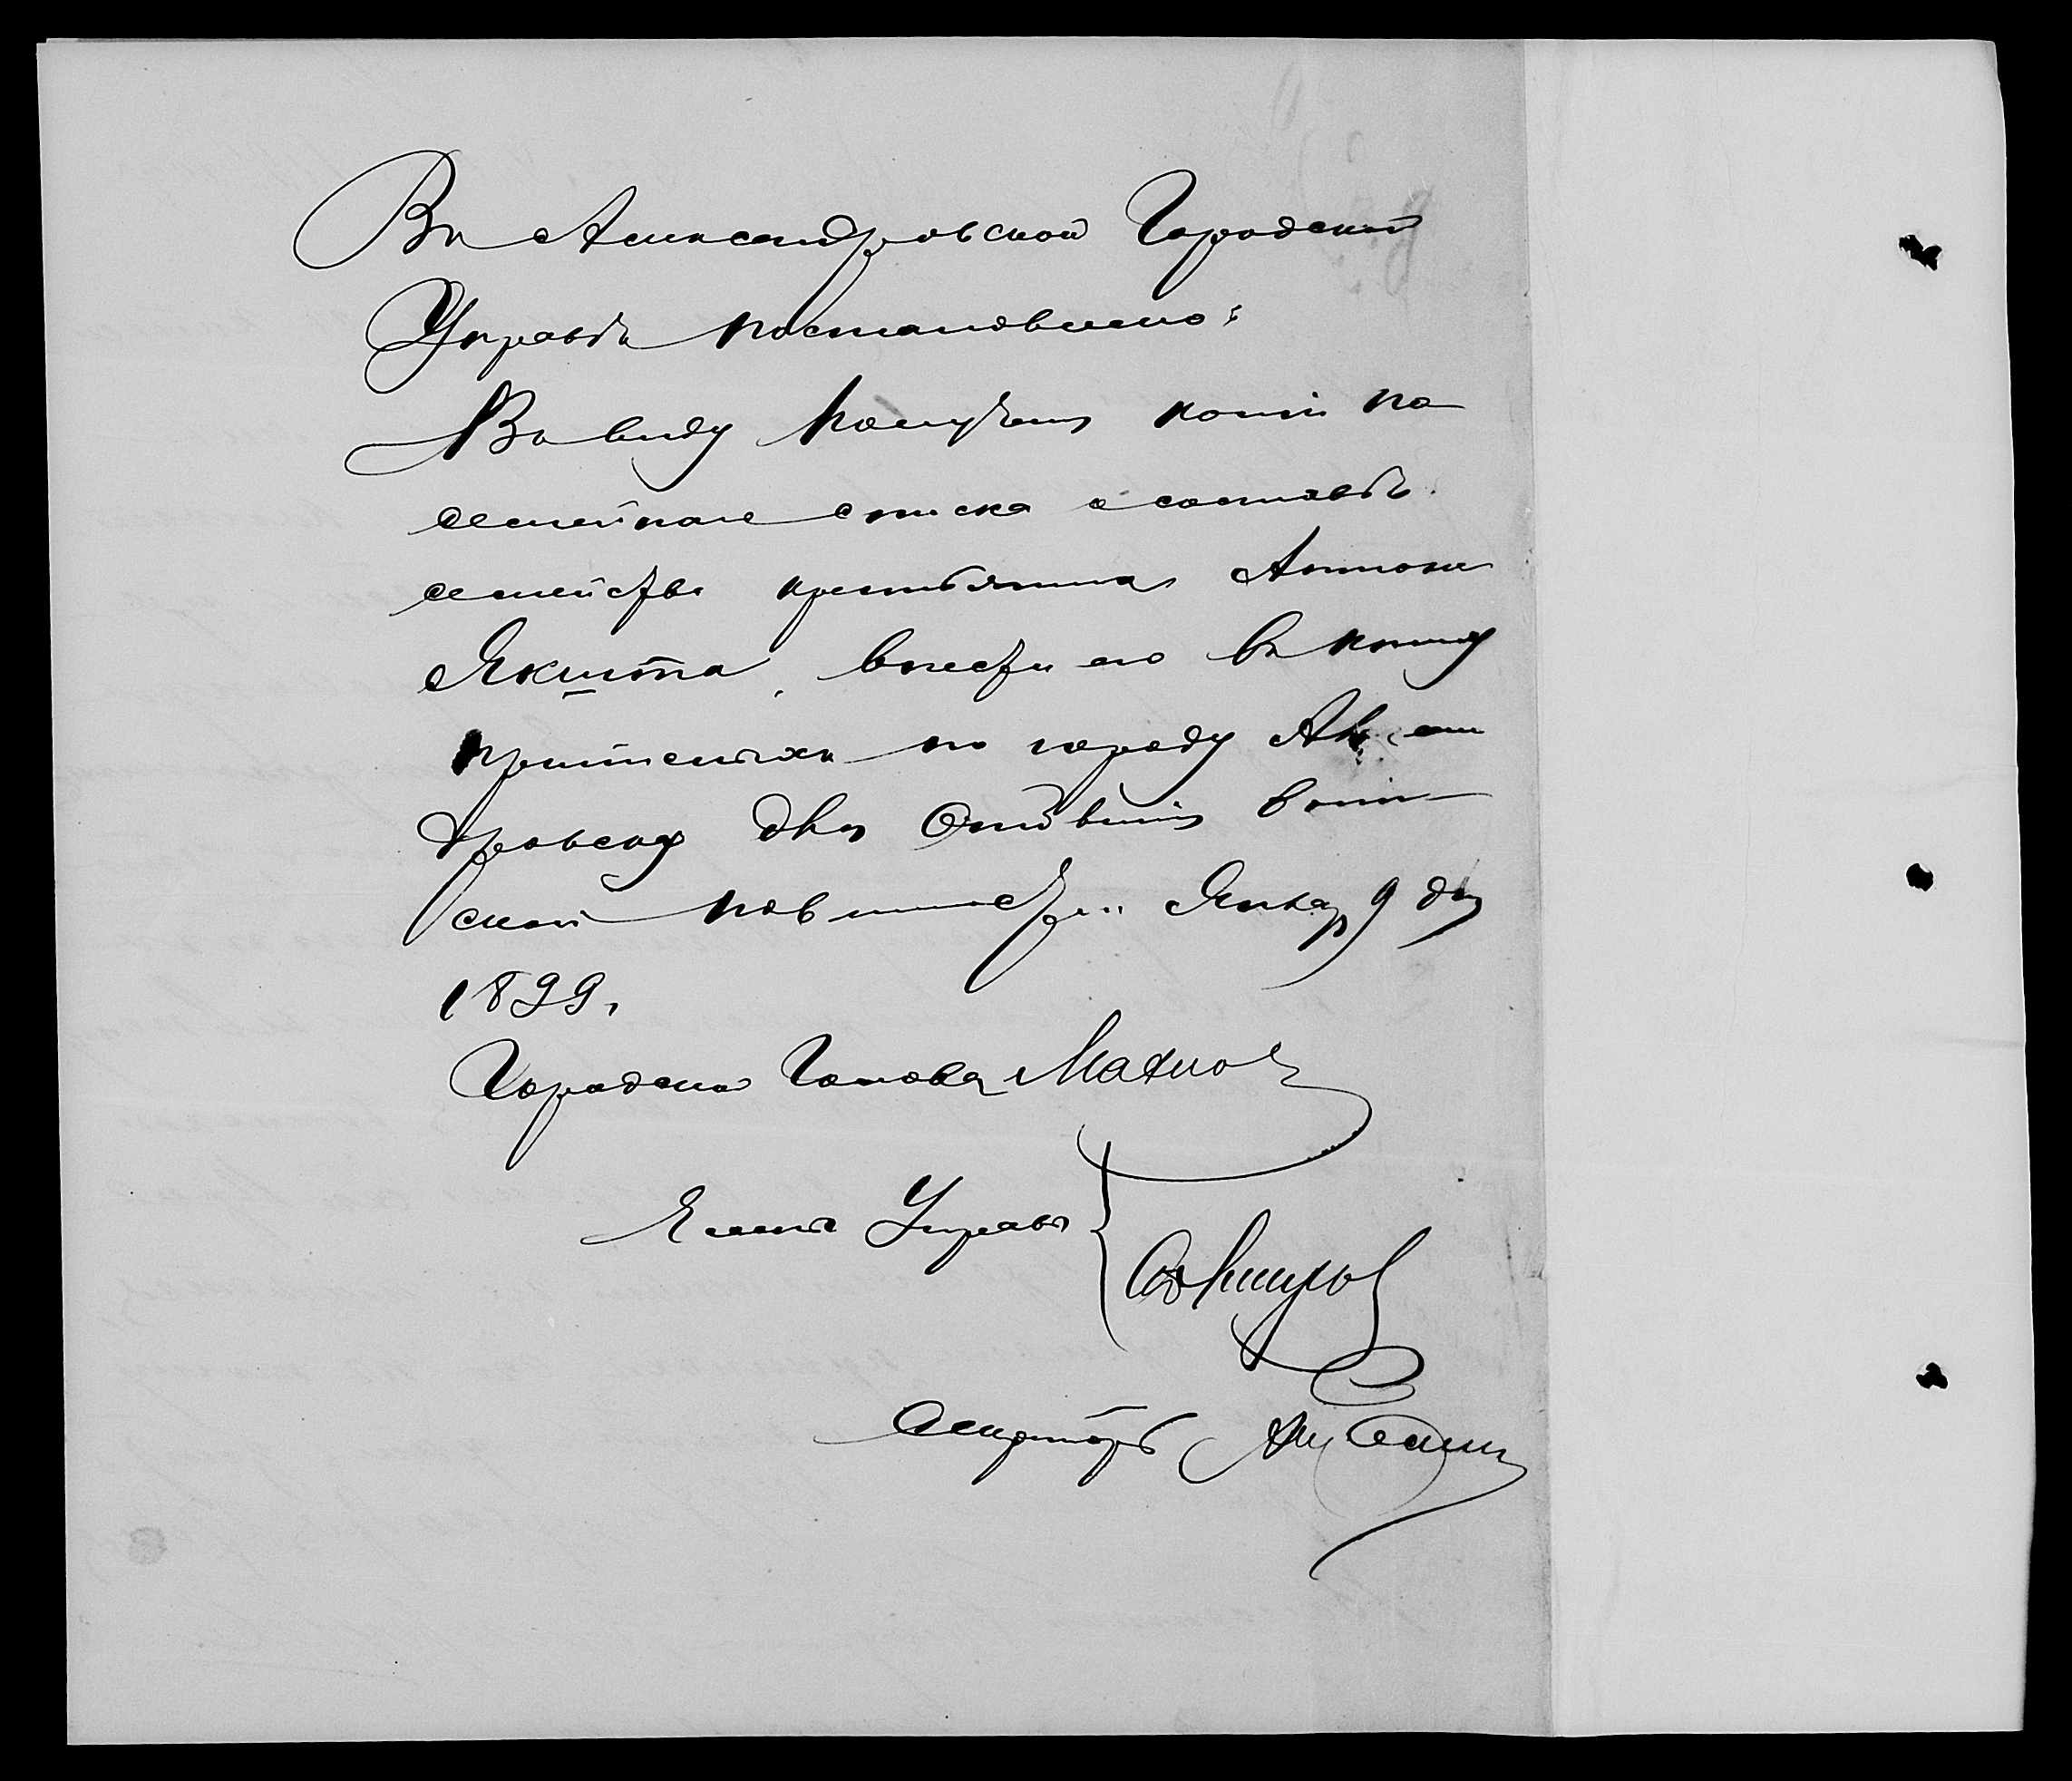 Въ Александровской Городской
Управѣ постановлено:
Въ виду получения копіи по
семейнаго списка о составѣ
семейства крестьянина Антона
Якимта, внести его въ книгу
приписныхъ по городу Алексан
дровску для отбыванія воин
ской повинности. Январ 9 дня
1899.
Городской Голова Махнов
Члены Управы
Секретарь